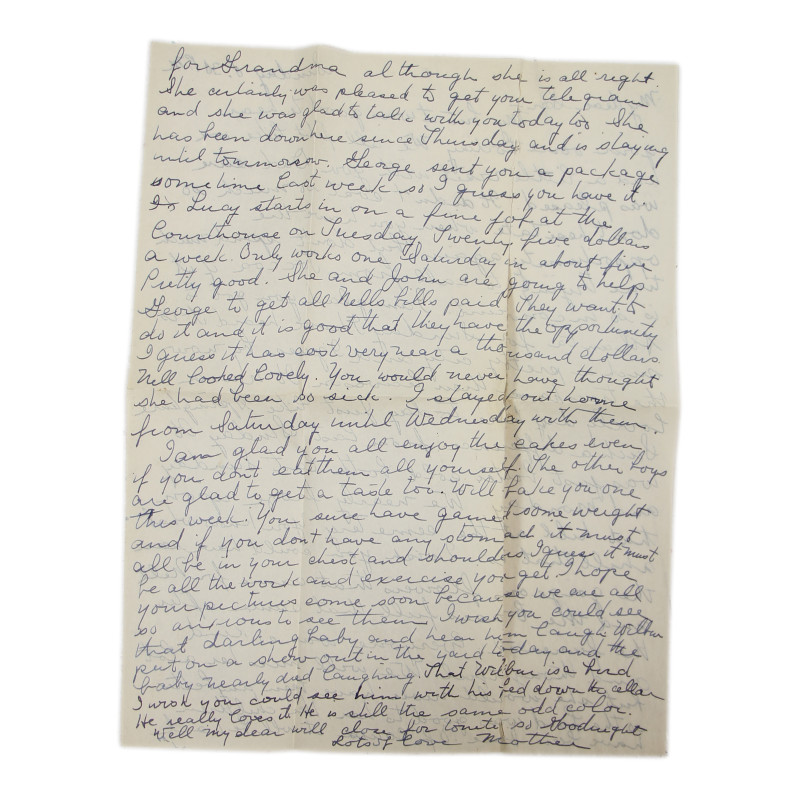 for Grandma although she is all right
She certianly was pleased to get your telegram
and she was glad to talk with you today too. She
has been down here since Thursday and is staying
until tommorsow. George sent you a package
sometime last week so I guess you have it.
Lucy starts in on a fine job at the
Courthouse on Tuesday, Twenty five dollars
a week. Only works one Saturday in about five
Pretty good. She and John are going to help
George to get all Nells bills paid. They want to
do it and it is good that they have the opportunity
I guess it has cost very near a thousand dollars
Nell looked lovely. You would never have thought
she had been so sick. I stayed out home
from Saturday until Wednesday with them.
I am glad you all enjoy the cakes even
if you don't eat them all yourself. The other boys
are glad to get a taste too. Will bake you one
this week. You sure have gained some weight
and if you dont have any stomach it must
all be in your chest and shoulders I guess it must
be all the work and exercise you get. I hope
your pictures come soon because we are all
so anxious to see them. I wish you could see
that darling baby and hear him laugh Wilbur
put on a show out in the yard today and the
baby nearly died laughing. That Wilbur is a bird
I wish you could see him with his bed down the cellar
He really loves it. He is still the same odd color.
Well my dear will close for tonite so Goodnight
Lots of Love Mother